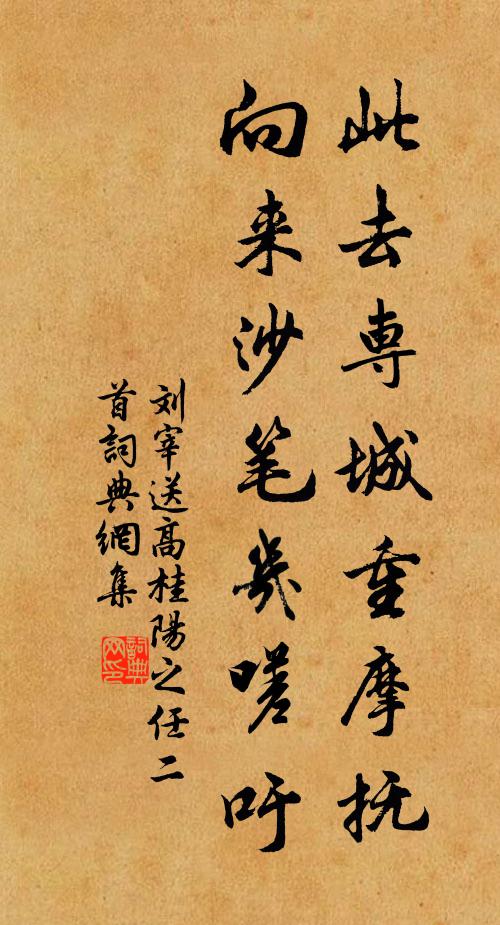 此去専城重摩抚
向来沙笔几嗟吁
刘宰送高桂陽之任二
首詞典網集
詞典
网印